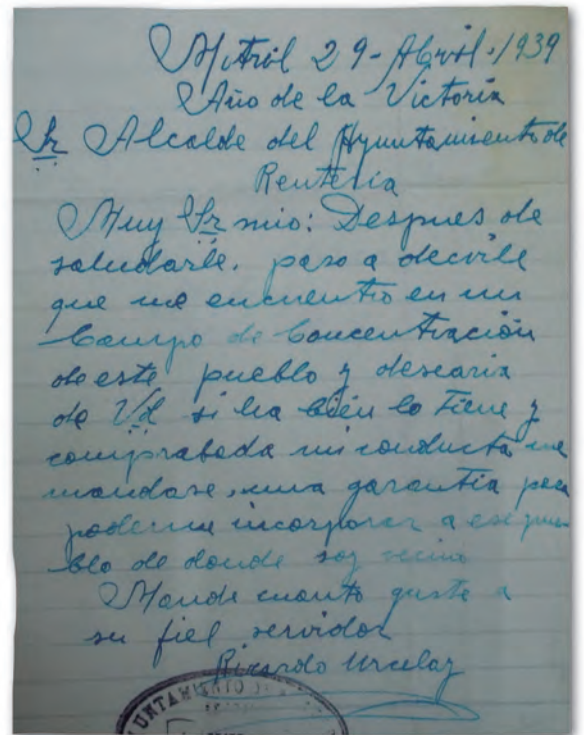 Motril 29-Abril-1939
Año de la Victoria
Sr Alcalde del Ayuntamiento de
Renteria
Muy Sr mio: Despues de
saludarle. paso a decirle
que me encuentro en un
Campo de Concentración
de este pueblo y desearia
de Vd si ha bién lo tiene y
comprabada mi conducta me
mandase, una garantia para
poderme incorporar a ese pue-
blo de donde soy vecino
Mande cuanto guste a
su fiel servidor
Ricardo Urcelay
UNTAMIENTO